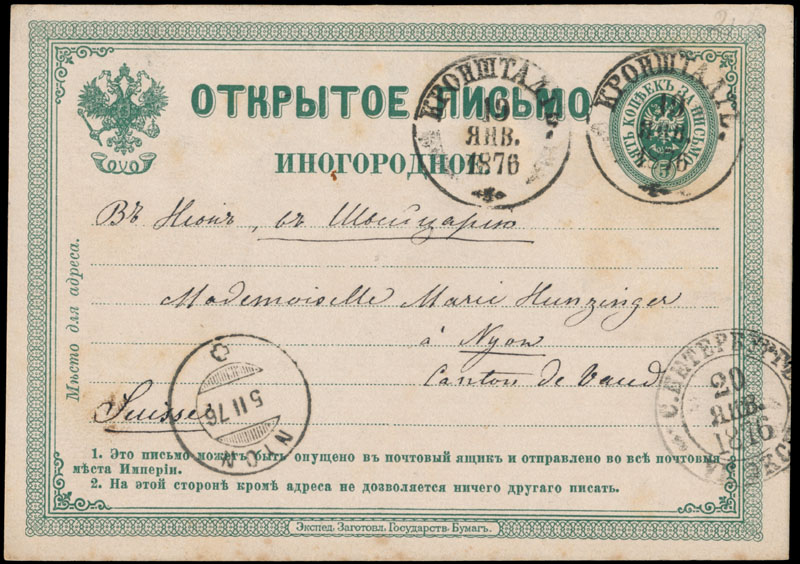 ОТКРЫТОЕ ПИСЬМО
ИНОГОРОДНОЕ
КРОНШТАДТЪ
19
ЯНВ.
1876
КРОНШТАДТЪ
19
ЯНВ.
1876
ПЯТЬ КОПѢЕКЪ ЗА ПИСЬМО
5
Мѣсто для адреса.
Въ Нiонъ, въ Швейцарiю
Mademoiselle Marie Hunzinger
à Nyon
Canton de Vaud
Suisse
NYON
5 II 76
С. ПЕТЕРБУРГЪ
20
ЯНВ.
1876
1. Это письмо можетъ быть опущено въ почтовый ящикъ и отправлено во всѣ почтовыя
мѣста Имперіи.
2. На этой сторонѣ кромѣ адреса не дозволяется ничего другаго писать.
Экспед. Заготовл. Государств. Бумагъ.